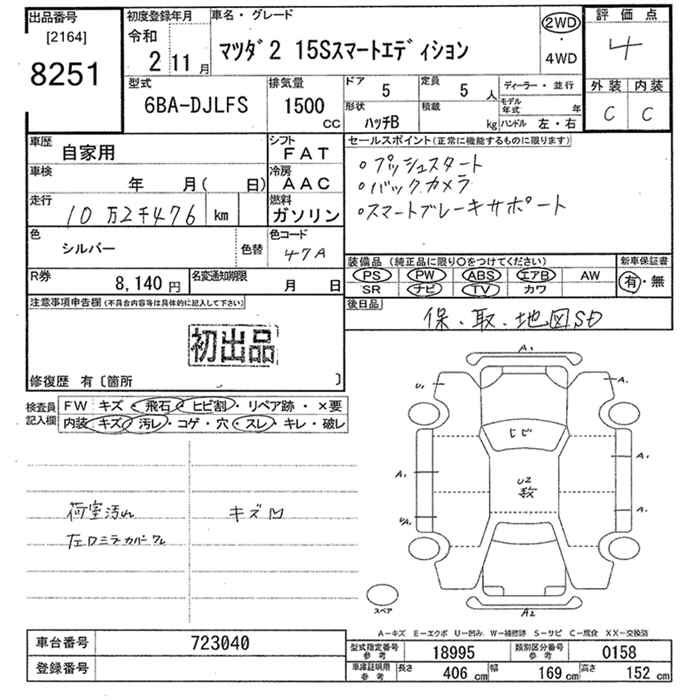 出品番号
[2164]
8251
初度登録年月
令和
2 11月
車名・グレード
マツダ2 15Sスマートエディション
2WD
・
4WD
評価点
4
外装 内装
C C
型式
6BA-DJLFS
排気量
1500
CC
ドア 5
定員 5 人
形状 ハッチB
積載 kg
ディーラー・並行
モデル年式 年
ハンドル 左・右
車歴 自家用
シフト FAT
車検 年 月( 日)
冷房 AAC
走行 10万2千476 km
燃料 ガソリン
色 シルバー
色替
色コード 47A
R券 8,140円
名変通知期限 月 日
セールスポイント(正常に機能するものに限ります)
○プッシュスタート
○バックカメラ
○スマートブレーキサポート
装備品(純正品に限り○をつけてください)
新車保証書
PS PW ABS エアB AW
SR ナビ TV カワ
有・無
後日品
保・取・地図SD
注意事項申告欄(不具合内容等は具体的に記入して下さい)
初出品
修復歴 有〔箇所 〕
検査員記入欄
FW キズ・飛石・ヒビ割・リペア跡・×要
内装 キズ・汚レ・コゲ・穴・スレ・キレ・破レ
荷室汚レ
キズ凹
A1
U1
A1
ヒビ
A1
A1
U2
数
A1
A2
スペア
A-キズ E-エクボ U-凹み W-補修跡 S-サビ C-腐食 XX-交換済
車台番号 723040
登録番号
型式指定番号 参考 18995
類別区分番号 参考 0158
車庫証明用 参考 長さ 406 cm 幅 169 cm 高さ 152 cm